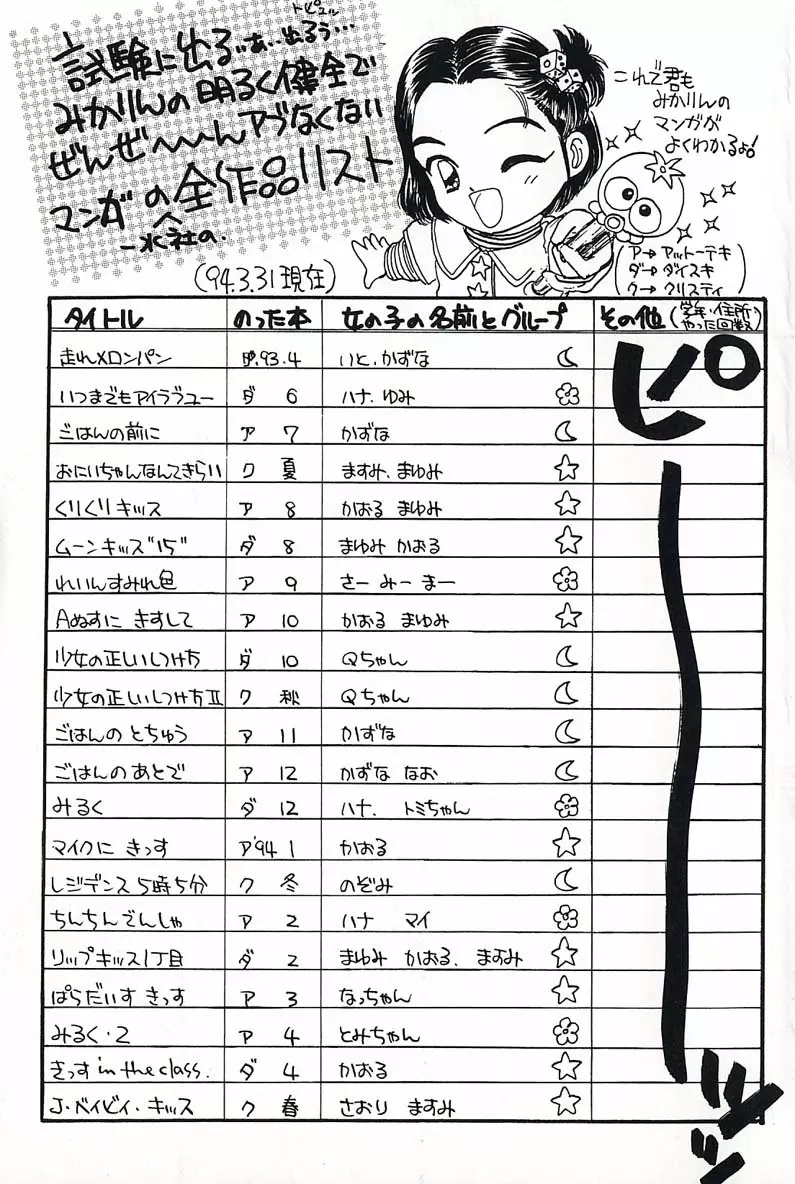 トピュル
試験に出るぅぁ…出るぅ…
みかりんの明るく健全で
ぜんぜ〜〜んアブなくない
マンガの全作品リスト
一水社の.
('94.3.31現在)
これで君も
みかりんの
マンガが
よくわかるよ!
ア→アットーテキ
ダ→ダイスキ
ク→クリスティ
タイトル のった本 女の子の名前とグループ その他(学年・住所・やった回数)
走れメロンパン '93.4 いと、かずな
いつまでもアイラブユー ダ 6 ハナ、ゆみ
ごはんの前に ア 7 かずな
おにいちゃんなんてきらい ク 夏 ますみ、まゆみ
くりくりキッス ア 8 かおる まゆみ
ムーンキッス"15" ダ 8 まゆみ かおる
れいんすみれ色 ア 9 さーみーまー
Aぬすに きすして ア 10 かおる まゆみ
少女の正しいしつけ方 ダ 10 Qちゃん
少女の正しいしつけ方Ⅱ ク 秋 Qちゃん
ごはんの とちゅう ア 11 かずな
ごはんのあとで ア 12 かずな なお
みるく ダ 12 ハナ、トミちゃん
マイクに きっす ア'94 1 かおる
レジデンス5時5分 ク 冬 のぞみ
ちんちんでんしゃ ア 2 ハナ マイ
リップキッス1丁目 ダ 2 まゆみ かおる、ますみ
ぱらだいす きっす ア 3 なっちゃん
みるく・2 ア 4 とみちゃん
きっす in the class. ダ 4 かおる
J・ベイビィ・キッス ク 春 さおり ますみ
ピーーッッ